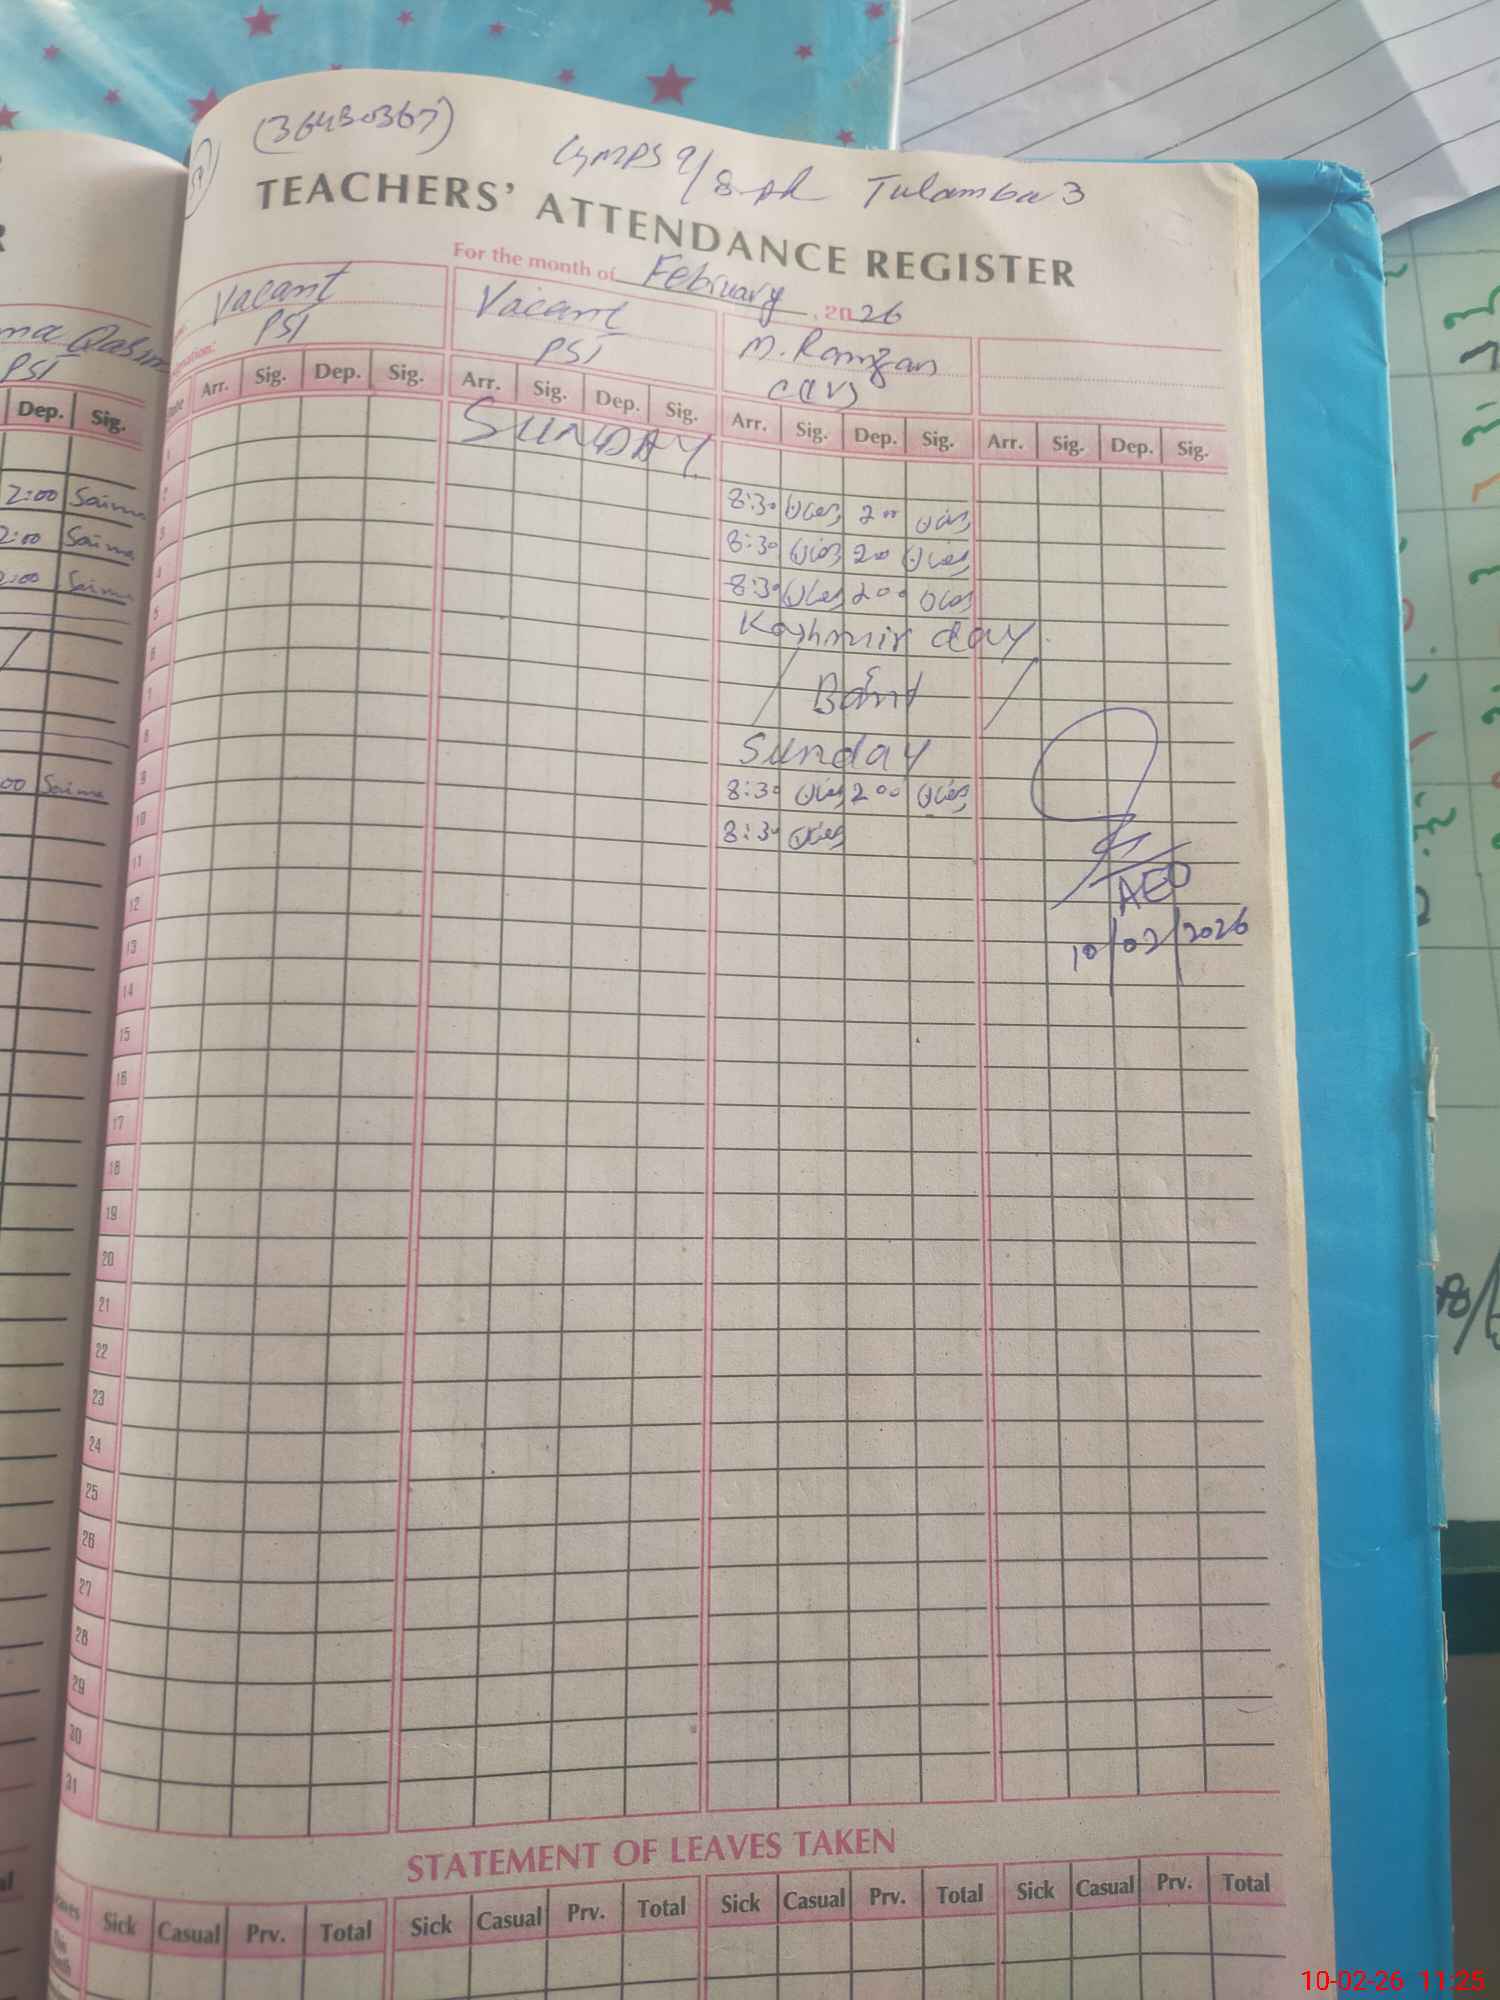 (36430367)
GMPS 9/8-AR Tulamba 3
TEACHERS' ATTENDANCE REGISTER
For the month of February, 2026
Vacant Vacant M. Ramzan
PSI PSI C(IV)
Arr. Sig. Dep. Sig. Arr. Sig. Dep. Sig. Arr. Sig. Dep. Sig. Arr. Sig. Dep. Sig.
1 SUNDAY
2 8:30 2 00
3 8:30 2 00
4 8:30 2 00
5 Kashmir day
6
7
8 Sunday
9 8:30 2 00
10 8:30
11
12
13
14
15
16
17
18
19
20
21
22
23
24
25
26
27
28
29
30
31
AEO
10/02/2026
STATEMENT OF LEAVES TAKEN
Sick Casual Prv. Total Sick Casual Prv. Total Sick Casual Prv. Total Sick Casual Prv. Total
PSI
Dep. Sig.
2:00 Saima
2:00 Saima
2:00 Saima
00 Saima
10-02-26 11:25